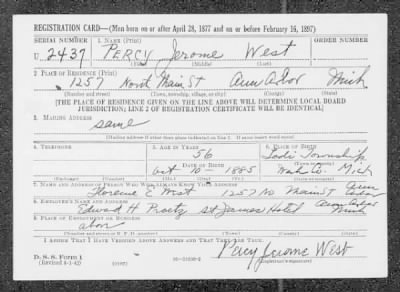 REGISTRATION CARD—(Men born on or after April 28, 1877 and on or before February 16, 1897)
SERIAL NUMBER 1. NAME (Print) ORDER NUMBER
U 2437 PERCY Jerome West
(First) (Middle) (Last)
2. PLACE OF RESIDENCE (Print)
1257 North Main St Ann Arbor Mich
(Number and street) (Town, township, village, or city) (County) (State)
[THE PLACE OF RESIDENCE GIVEN ON THE LINE ABOVE WILL DETERMINE LOCAL BOARD
JURISDICTION; LINE 2 OF REGISTRATION CERTIFICATE WILL BE IDENTICAL]
3. MAILING ADDRESS
same
[Mailing address if other than place indicated on line 2. If same insert word same]
4. TELEPHONE 5. AGE IN YEARS 6. PLACE OF BIRTH
56 Lodi Township
DATE OF BIRTH (Town or county)
Oct 10 - 1885 Wash Co Mich
(Exchange) (Number) (Mo.) (Day) (Yr.) (State or country)
7. NAME AND ADDRESS OF PERSON WHO WILL ALWAYS KNOW YOUR ADDRESS
Florence E West 1257 No Main St Ann Arbor
8. EMPLOYER'S NAME AND ADDRESS
Edward H St James Hotel Ann Arbor Mich
9. PLACE OF EMPLOYMENT OR BUSINESS
abov
(Number and street or R. F. D. number) (Town) (County) (State)
I AFFIRM THAT I HAVE VERIFIED ABOVE ANSWERS AND THAT THEY ARE TRUE.
D. S. S. Form 1
(Revised 4-1-42) (over)
Percy Jerome West
(Registrant's signature)